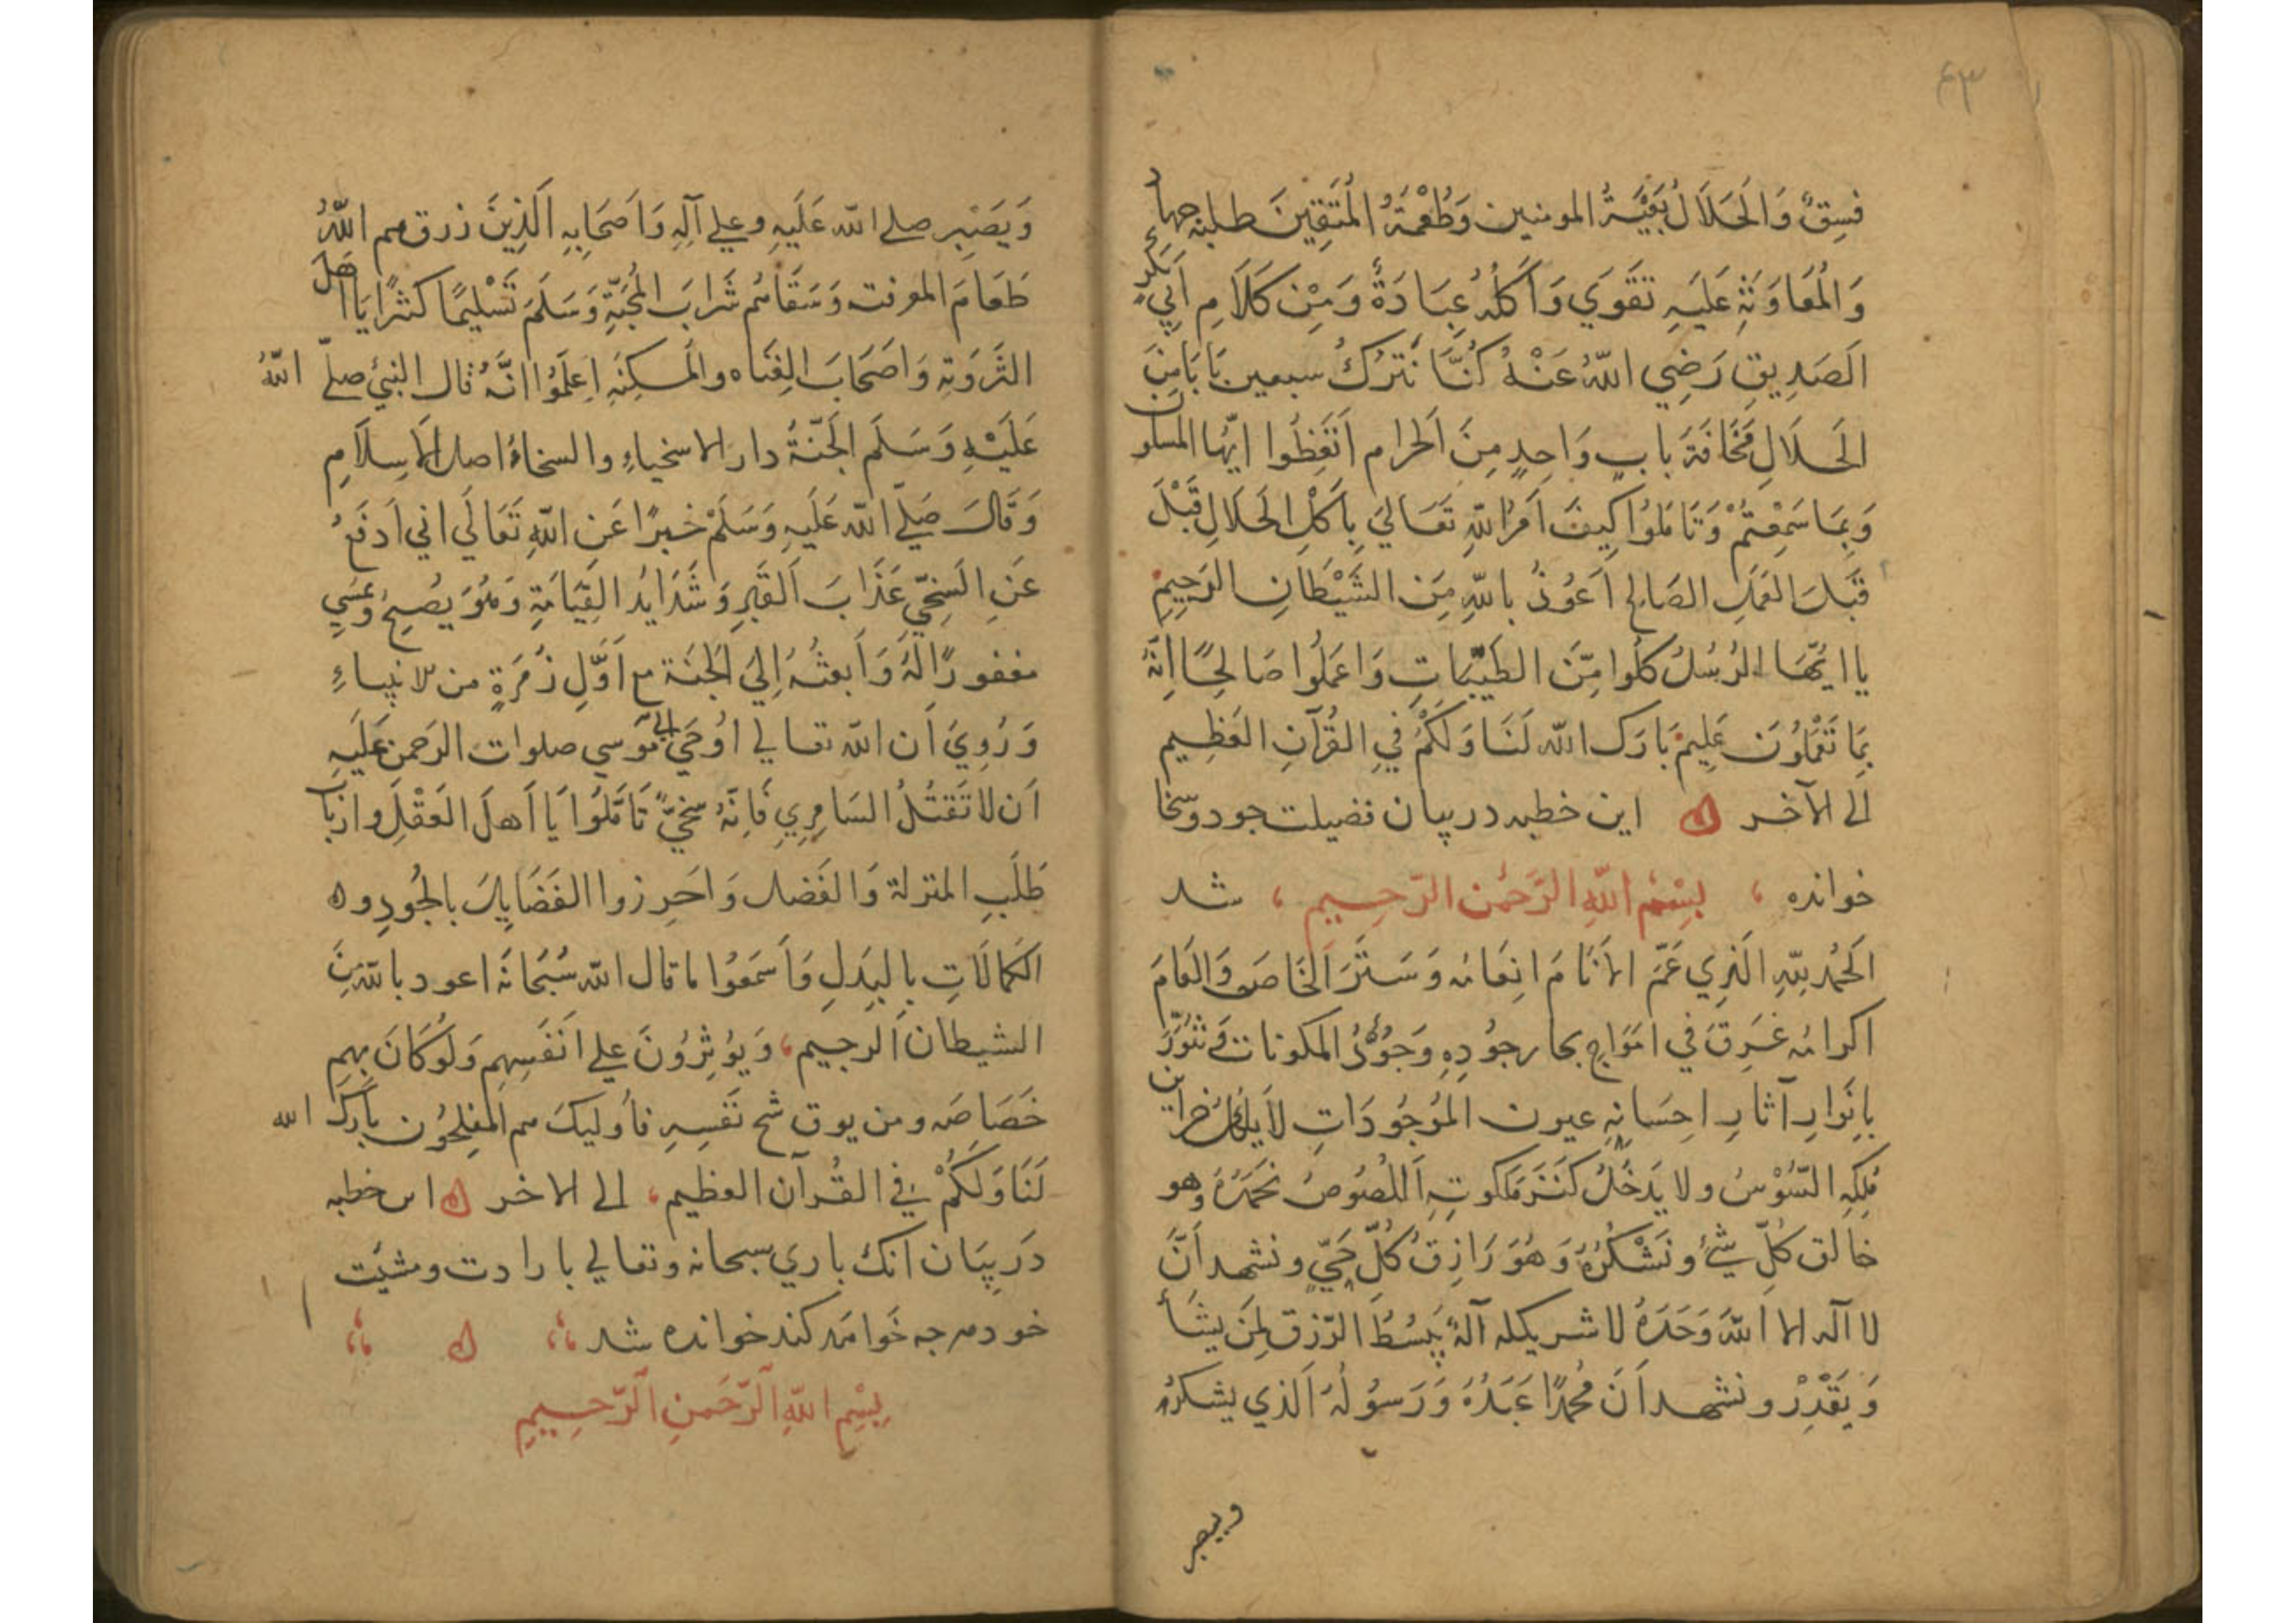 ۴۳
فِسقٌ وَالحَلَالُ بُغیَةُ المومنین وَطُعْمَةُ المُتَّقِینَ طلبه جهاد
وَالمُعَاوَنَةِ عَلَیهِ تَقَوي وَاَکْلُهُ عِبَادَةٌ وَمِنْ کَلَامِ اَبِي بَکرٍ
الَصَدِیقِ رَضِي اللّٰهُ عَنْهُ کُنَّا نَترُكُ سبعین بَابَا مِنَ
الحَلَالِ مَخَافَةَ بابٍ وَاحِدٍ مِنَ الحرام اَتَّعِظُوا ایّها المسلمون
وَبِمَا سَمِعْتُمْ وَتَامَلوُا کَیفَ اَمَرُ اللّٰهِ تَعَالیَ بِاَکْلِ الحَلَالِ قَبْلَ
قَبَلَ العَمَلِ الصَالِح اَعوُذُ باللّٰهِ مِنَ الشَّیْطَانِ الرَجِیمِ
یا ایُّهَا الرُسُلُ کُلُوا مِنَ الطَیّبَاتِ وَاعمَلُوا صَالِحًا اِنَّهُ
بِمَا تَعْمَلُونَ عَلِیمٌ بَارَك اللّٰه لَنَا وَلَکُمْ فِي القُرآنِ العَظِیم
الی الآخر این خطبه در بیان فضیلت جود وسخا
خوانده بِسْمِ اللّٰهِ الرَّحمٰنِ الرَّحِیمِ شد
اَلحَمْدُ لِلّٰهِ الَذِي عَمَّ الاَنَامَ اِنعَامُه وَسَتَرَ الخَاصَ وَالعَامَ
اکرامُه غَرِقَ في امَوَاجِ بحار جُودِهِ وَجُوُدُ المکونات وَ تَنَوَّرَ
بِاَنْوارِ آثارِ اِحسَانِهِ عیون المَوُجُودَاتِ لَا یَأکُلُ خزاین
مُلکِهِ السّوُسُ ولا یَدخُلُ کَنَزَ مَلکوتِهِ اللُصوُصُ نَحْمَدُهُ وَهو
خالق کُلِّ شَيْءٍ ونَشْکُرُهُ وَهُوَ رَازِقُ کُلِّ حَيّ ونشهد اَنَّ
لا آله الا اللّٰهُ وَحَدَهُ لا شریکله آلهٌ یَبسُطُ الرّزق لِمَن یَشَأ
وَیَقْدِرْ ونشهد اَنَّ مُحمدًا عَبَدُهُ وَرَسوُلُهُ الَذي یشکرُ
ویصبر
وَیَصْبِر صلے اللّٰه عَلَیهِ وعلی آلِهِ وَاَصحَابِهِ الَذِینَ رزقهم اللّٰهُ
طَعَامَ المعرفت وَسَقَاهُم شَرابَ المُحبَّةِ وَسَلَمَ تَسْلِیمًا کثیرًا یا اهل
الثَروَتِه وَاَصحَابَ الغِناه والمَسکِنَهِ اِعلَمُوا انَّهُ قال النبيُ صلّے اللّٰهُ
عَلَیْهِ وَسَلَم الجَنّةُ دار الاسخیاءِ والسخاءُ اصل الاِسِلَامِ
وَقَالَ صَلّے اللّٰه عَلَیهِ وَسَلَمْ خبرًا عَن اللّٰهِ تَعَالَي اني اَدفَعُ
عَنِ السَخِيِّ عَذَابَ القَبرِ وَشَدَایدُ القِیَامَةِ وَهُوَ یُصبِحُ وَیُمسِي
مغفورًا لَهُ وَاَبعثُهُ اِليَ الجَنَة مع اَوَّلِ زُمَرَةٍ من الانبیاءِ
وَرُوِيَ اَن اللّٰه تعالے اَوُحَي الی مُوسي صلوات الرَحمن عَلَیهِ
اَن لا تَقتُلُ السَامِرِي فَاِنَّهُ سَخِيٌّ تَامَّلُوا یَا اَهلَ العَقْلِ وارباب
طَلَبِ المنزلة وَالفَضل وَاحَرِزوا الفَضَایِلَ بالجُودِ وه
الکَمالَاتِ بِالبَذلِ وَاَسمَعُوا ما قال اللّٰه سُبحَانَهُ اعود باللّٰه مِنَ
الشیطان الرجیم، وَیوُثِرُونَ علے اَنَفسِهِم وَلَوُکَانَ بِهِم
خَصَاصَه ومن یوق شح نَفسِهِ فاُولیكَ هم المُفلِحُون بارَكَ الله
لَنَا وَلَکُمْ في القُرآن العظیم، الے الاخر این خطبه
دَر بیَان آنك باري سبحانه وتعالے بارادت ومشیَت
خود هرچه خَواهَد کند خوانده شد
بِسْمِ اللّٰهِ الرَّحَمنِ الرَّحِیمِ